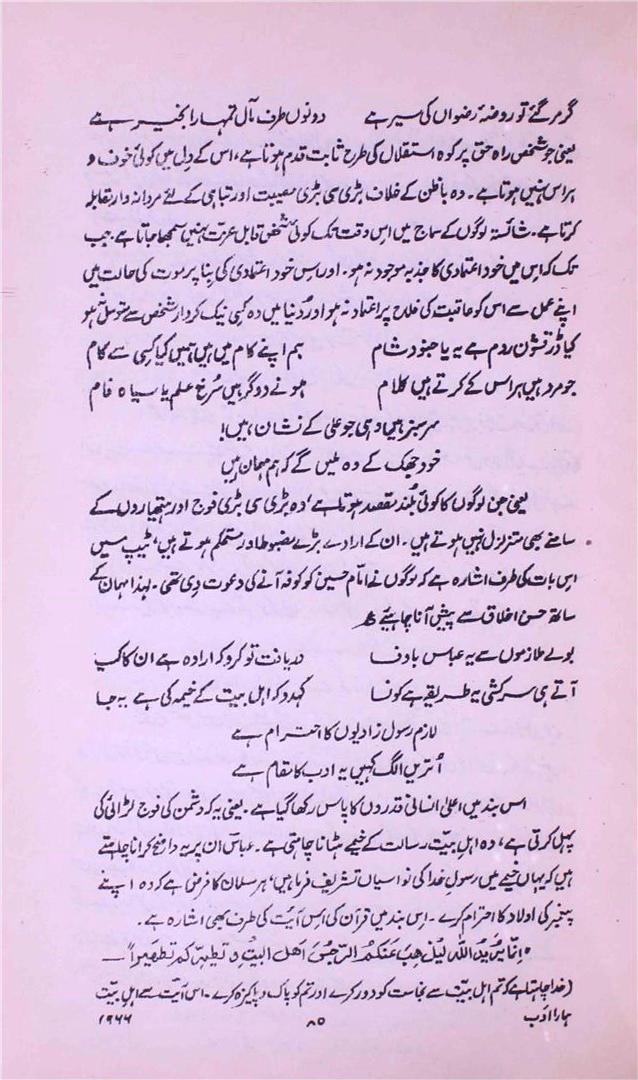 گر مر گئے تو روضۂ رضواں کی سیر ہے دونوں طرف مآل تمہارا بخیر ہے
یعنی جو شخص راہ حق پر کوہ استقلال کی طرح ثابت قدم ہوتا ہے، اس کے دل میں کوئی خوف و
ہراس نہیں ہوتا ہے۔ وہ باطل کے خلاف بڑی سی بڑی مصیبت اور تباہی کے لئے مردانہ وار مقابلہ
کرتا ہے۔ شائستہ لوگوں کے سماج میں اس وقت تک کوئی شخص قابل عزت نہیں سمجھا جاتا ہے جب
تک کہ اس میں خود اعتمادی کا جذبہ موجود نہ ہو۔ اور اس خود اعتمادی کی بنا پر موت کی حالت میں
اپنے عمل سے اس کو عاقبت کی فلاح پر اعتماد نہ ہو اور دُنیا میں وہ کسی نیک کردار شخص سے متوسل نہ ہو
کیا ڈر قشون روم ہے یہ یا جنود شام ہم اپنے کام میں ہیں ہمیں کیا کسی سے کام
جو مرد ہیں ہراس کے کرتے ہیں کلام ہونے دو گر ہیں سُرخ علم یا سیاہ فام
سرسبز ہیں وہی جو علی کے نشان ہیں!
خود جھک کے وہ ملیں گے کہ ہم مہمان ہیں
یعنی جن لوگوں کا کوئی بلند مقصد ہوتا ہے، وہ بڑی سی بڑی فوج اور ہتھیاروں کے
سامنے بھی متزلزل نہیں ہوتے ہیں۔ ان کے ارادے بڑے مضبوط اور مستحکم ہوتے ہیں، ٹیپ میں
اس بات کی طرف اشارہ ہے کہ لوگوں نے امام حسین کو کوفہ آنے کی دعوت دی تھی۔ لہذا مہمان کے
ساتھ حسن اخلاق سے پیش آنا چاہیئے
بولے ملازموں سے یہ عباس باوفا دریافت تو کرو کہ ارادہ ہے ان کا کیا
آتے ہی سرکشی یہ طریقہ ہے کونسا کہدو کہ اہل بیت کے خیمہ کی ہے یہ جا
لازم رسول زادیوں کا احترام ہے
اُتریں الگ کہیں یہ ادب کا مقام ہے
اس بند میں اعلیٰ انسانی قدروں کا پاس رکھا گیا ہے۔ یعنی یہ کہ دشمن کی فوج لڑائی کی
پہل کرتی ہے، وہ اہل بیت رسالت کے خیمے ہٹانا چاہتی ہے۔ عباس ان پر یہ واضح کرانا چاہتے
ہیں کہ یہاں خیمے میں رسول خدا کی نواسیاں تشریف فرما ہیں، ہر مسلمان کا فرض ہے کہ وہ اپنے
پیغمبر کی اولاد کا احترام کرے۔ اس بند میں قرآن کی اس آیت کی طرف بھی اشارہ ہے۔
"انما یرید اللہ لیذہب عنکم الرجس اہل البیت و یطہرکم تطہیراً"—
(خدا چاہتا ہے کہ تم اہل بیت سے نجاست کو دور کرے اور تم کو پاک و پاکیزہ کرے۔ اس آیت سے اہل بیت
ہمارا ادب ۸۵ ۱۹۶۶